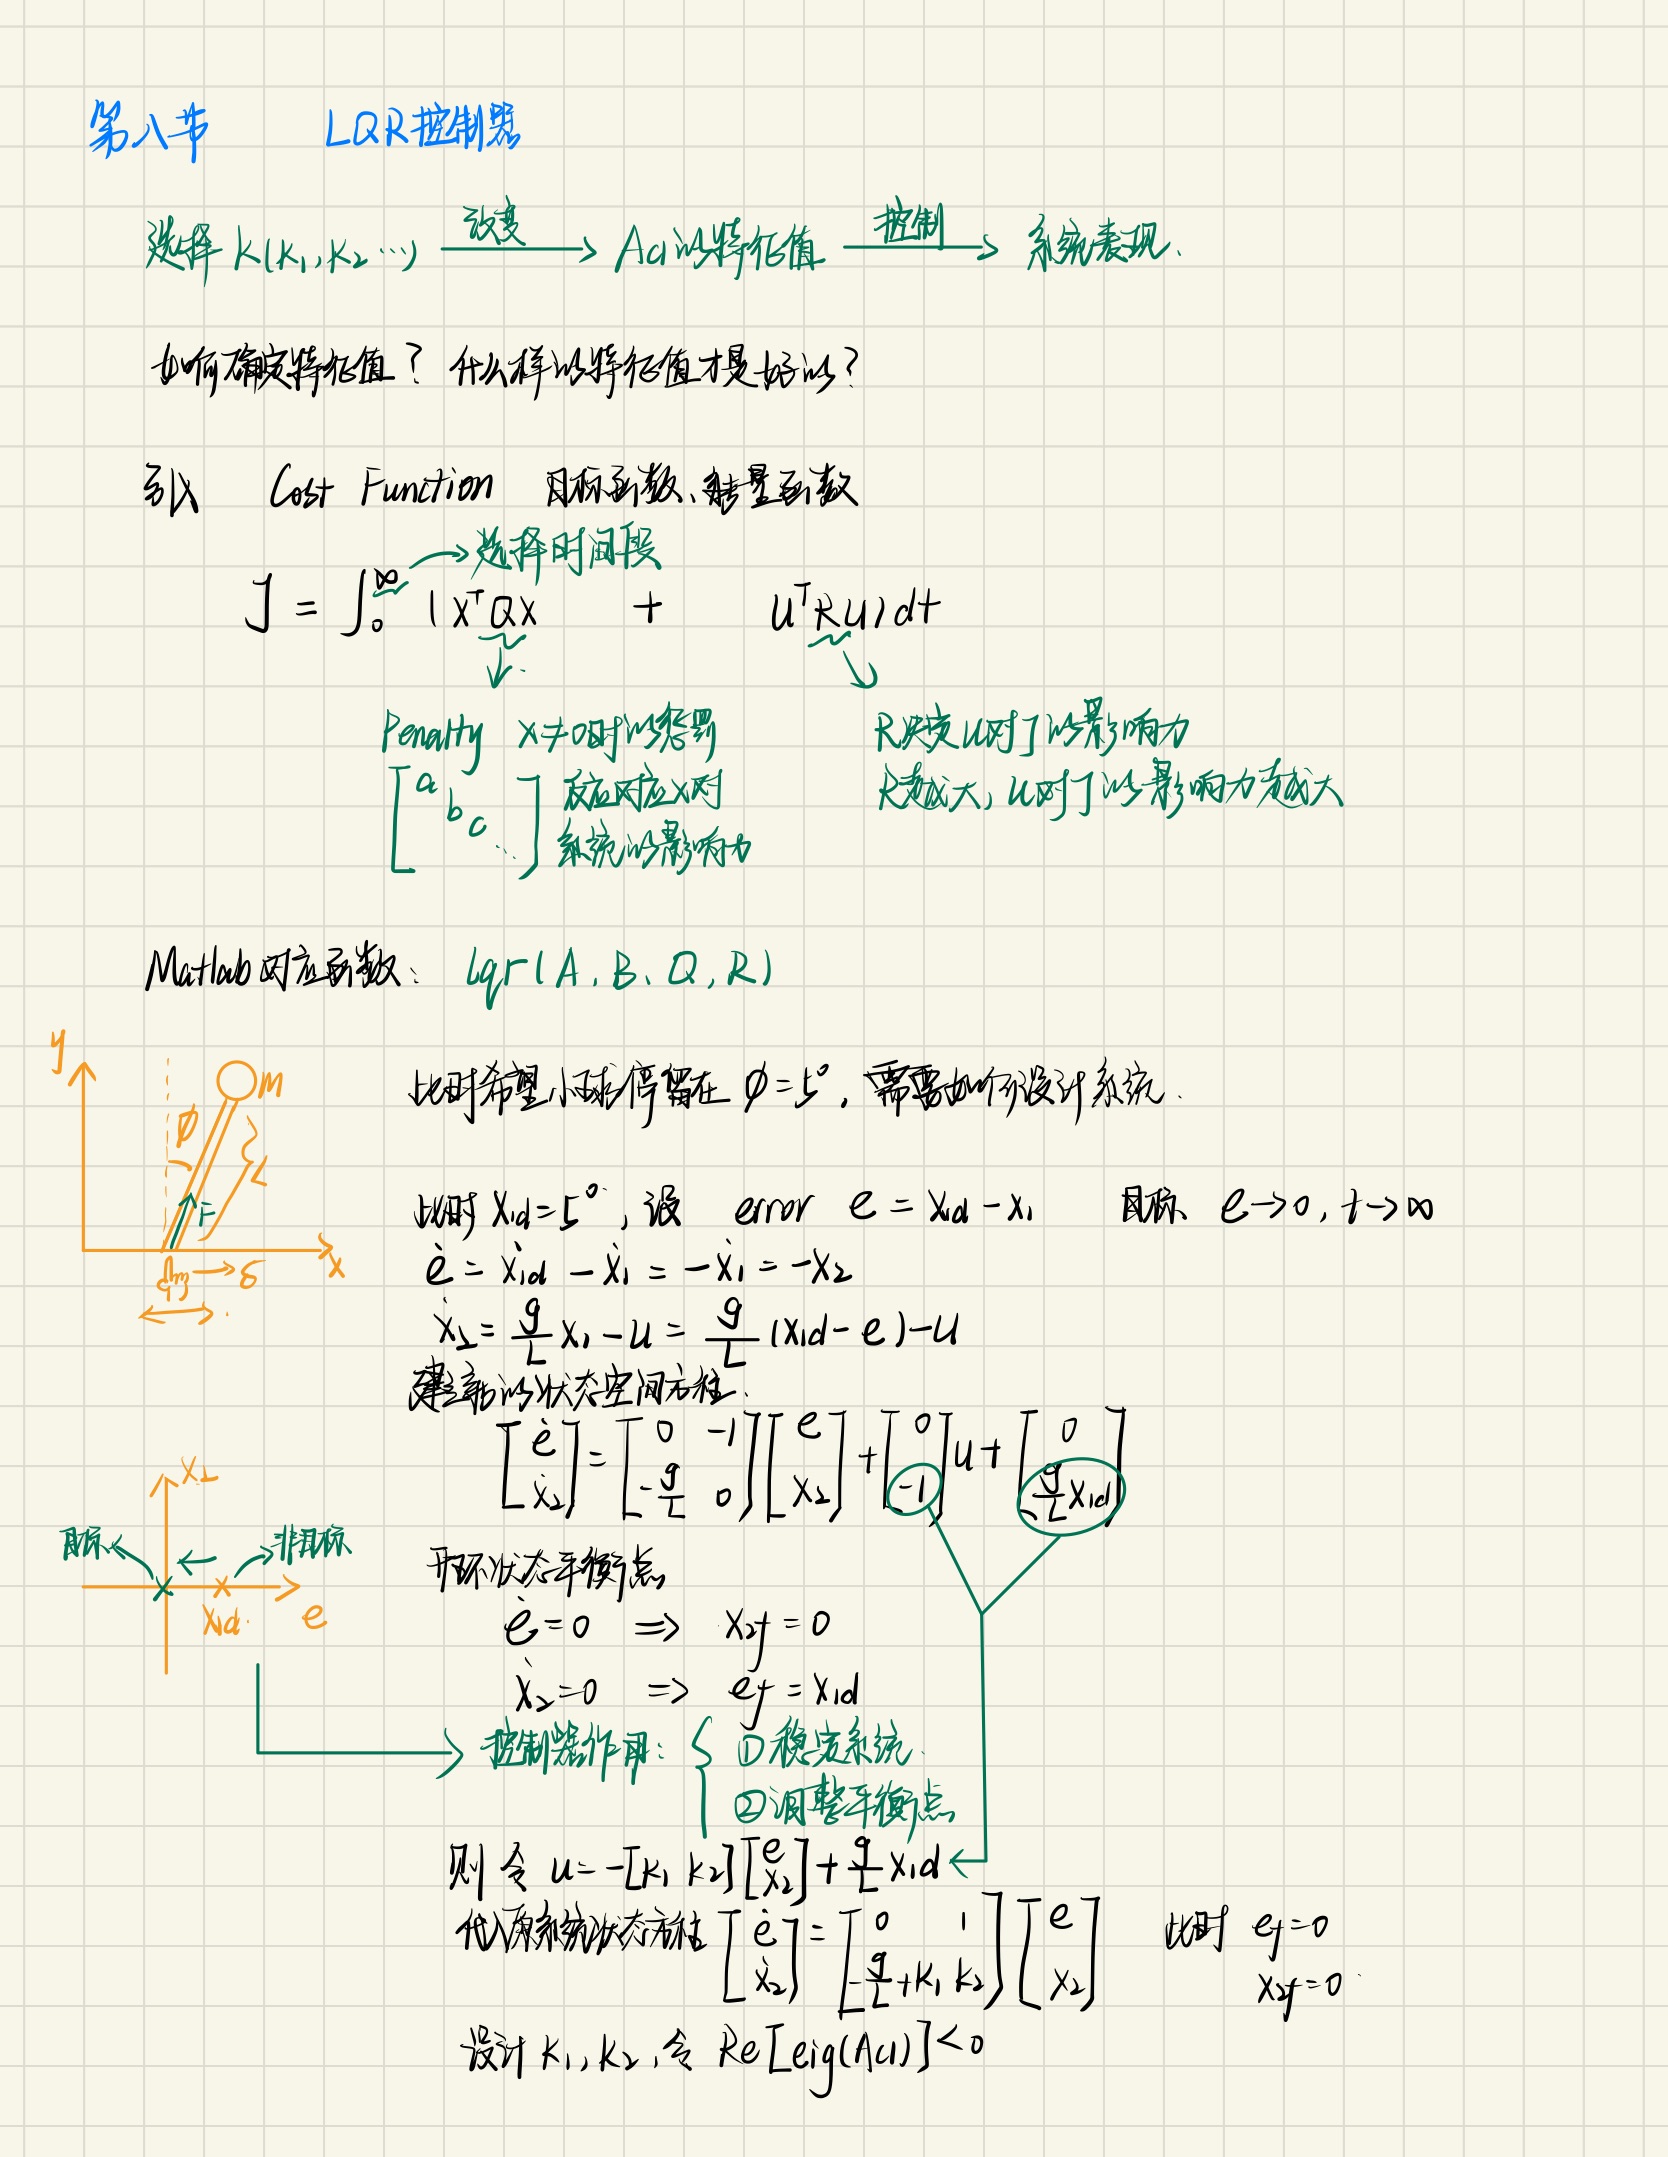 第八节 LQR控制器
选择 K(K₁,K₂…) 改变 → Acl的特征值 控制 → 系统表现.
如何确定特征值? 什么样的特征值才是好的?
引入 Cost Function 目标函数、能量函数
→选择时间段
J = ∫₀^∞ (xᵀQx + uᵀRu)dt
Penalty x≠0时的惩罚
R决定u对J的影响力
[a b c ⋱] 反应对应x对
R越大,u对J的影响力越大
系统的影响力
Matlab对应函数: lqr(A、B、Q,R)
y
m
φ
L
F
x
→δ
此时希望小球停留在 φ=5°, 需要如何设计系统.
此时 x₁d=5°, 设 error e = x₁d - x₁ 目标 e→0, t→∞
ė = ẋ₁d - ẋ₁ = -ẋ₁ = -x₂
ẋ₂ = g/L x₁ - u = g/L (x₁d - e) - u
建立新的状态空间方程.
[ė ẋ₂] = [0 -1; -g/L 0] [e x₂] + [0 -1] u + [0 g/L x₁d]
x₂
目标
非目标
x₁d.
e
开环状态平衡点
ė=0 ⇒ x₂f = 0
ẋ₂=0 ⇒ ef = x₁d
控制器作用: { ①稳定系统.
②调整平衡点
则令 u= -[K₁ K₂][e x₂] + g/L x₁d
代入原系统状态方程 [ė ẋ₂] = [0 1; -g/L+K₁ K₂] [e x₂] 此时 ef=0
x₂f=0
设计 K₁,K₂,令 Re[eig(Acl)]<0